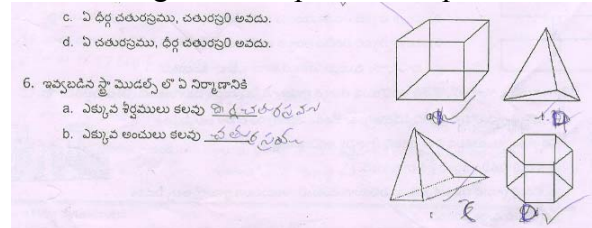 c. ఏ ధీర్ఘ చతురస్రము, చతురస్ర0 అవదు.
d. ఏ చతురస్రము, ధీర్ఘ చతురస్ర0 అవదు.
6. ఇవ్వబడిన స్ట్రా మొడల్స్ లొ ఏ నిర్మాణానికి
a. ఎక్కువ శీర్షములు కలవు
b. ఎక్కువ అంచులు కలవు చతురస్రము